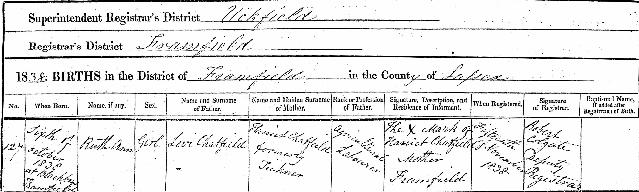 Superintendent Registrar's District Uckfield
Registrar's District Framfield
1838 BIRTHS in the District of Framfield in the County of Sussex
No. When Born. Name, if any. Sex. Name and Surname of Father. Name and Maiden Surname of Mother. Rank or Profession of Father. Signature, Description, and Residence of Informant. When Registered. Signature of Registrar. Baptismal Name, if added after Registration of Birth.
127
Sixth of
October
1838
at Blackboys
Framfield
Ruth Ann
Girl
Levi Chatfield
Harriet Chatfield
formerly
Agricultural
Labourer
The X Mark of
Harriet Chatfield
Mother
Framfield
November
1838
Deputy
Registrar